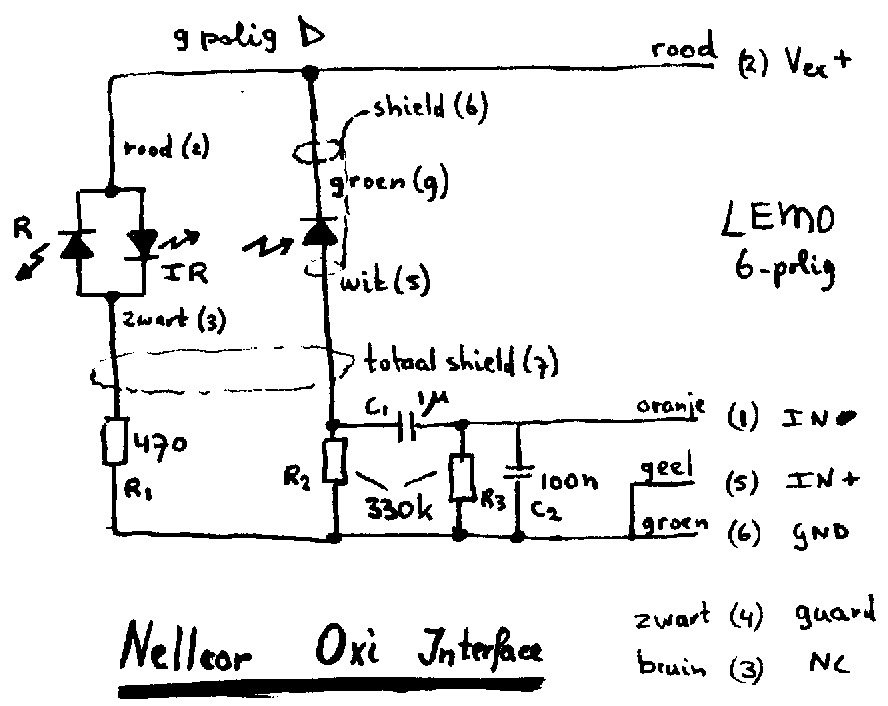 9 polig
rood (2) Vex+
shield (6)
rood (2)
groen (9)
R
IR
LEMO
6-polig
wit (5)
zwart (3)
totaal shield (7)
C1 1μ
oranje (1) IN
470
R1
R2
330k
R3
100n
C2
geel (5) IN+
groen (6) GND
zwart (4) guard
bruin (3) NC
Nellcor Oxi Interface